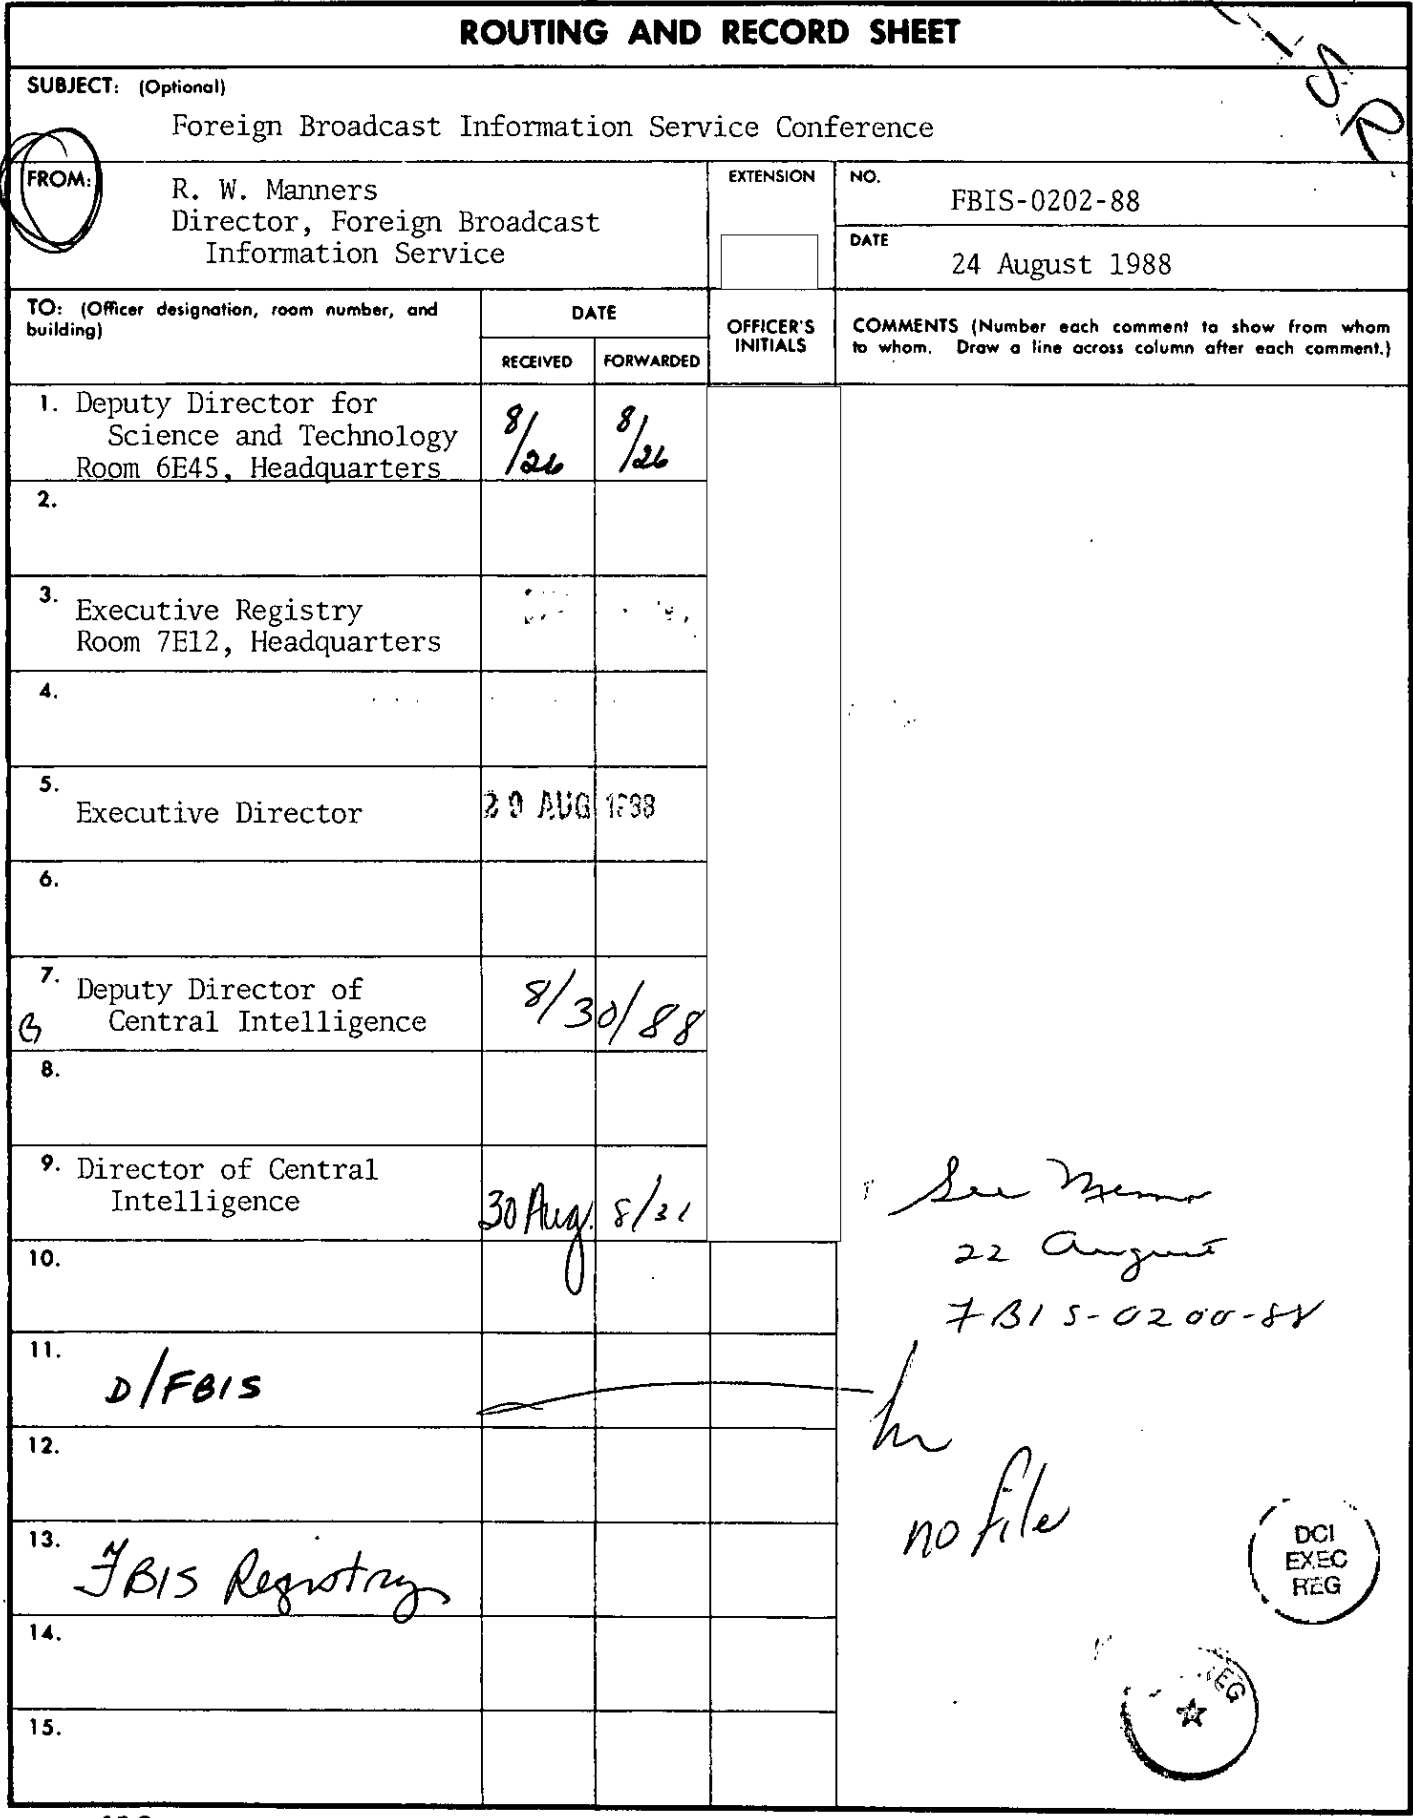 ROUTING AND RECORD SHEET
SUBJECT: (Optional)
Foreign Broadcast Information Service Conference
FROM:
R. W. Manners
Director, Foreign Broadcast
Information Service
EXTENSION
NO.
FBIS-0202-88
DATE
24 August 1988
TO: (Officer designation, room number, and
building)
DATE
RECEIVED
FORWARDED
OFFICER'S
INITIALS
COMMENTS (Number each comment to show from whom
to whom. Draw a line across column after each comment.)
1. Deputy Director for
Science and Technology
Room 6E45, Headquarters
8/26
8/26
2.
3. Executive Registry
Room 7E12, Headquarters
4.
5. Executive Director
29 AUG 1988
6.
7. Deputy Director of
Central Intelligence
8/30/88
8.
9. Director of Central
Intelligence
30 Aug.
8/31
See Memo
22 August
FBIS-0200-88
10.
11. D/FBIS
12.
no file
13. FBIS Registry
DCI
EXEC
REG
14.
15.